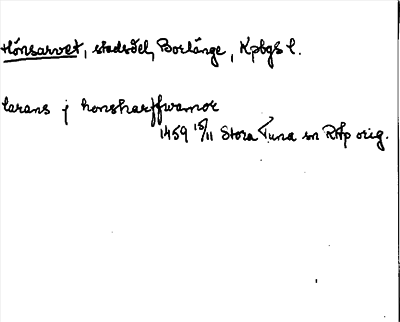 Hönsarvet, stadsdel, Borlänge, Kpbgs l.
larans j honsharffwamot
1459 15/11 Stora Tuna sn RAp orig.